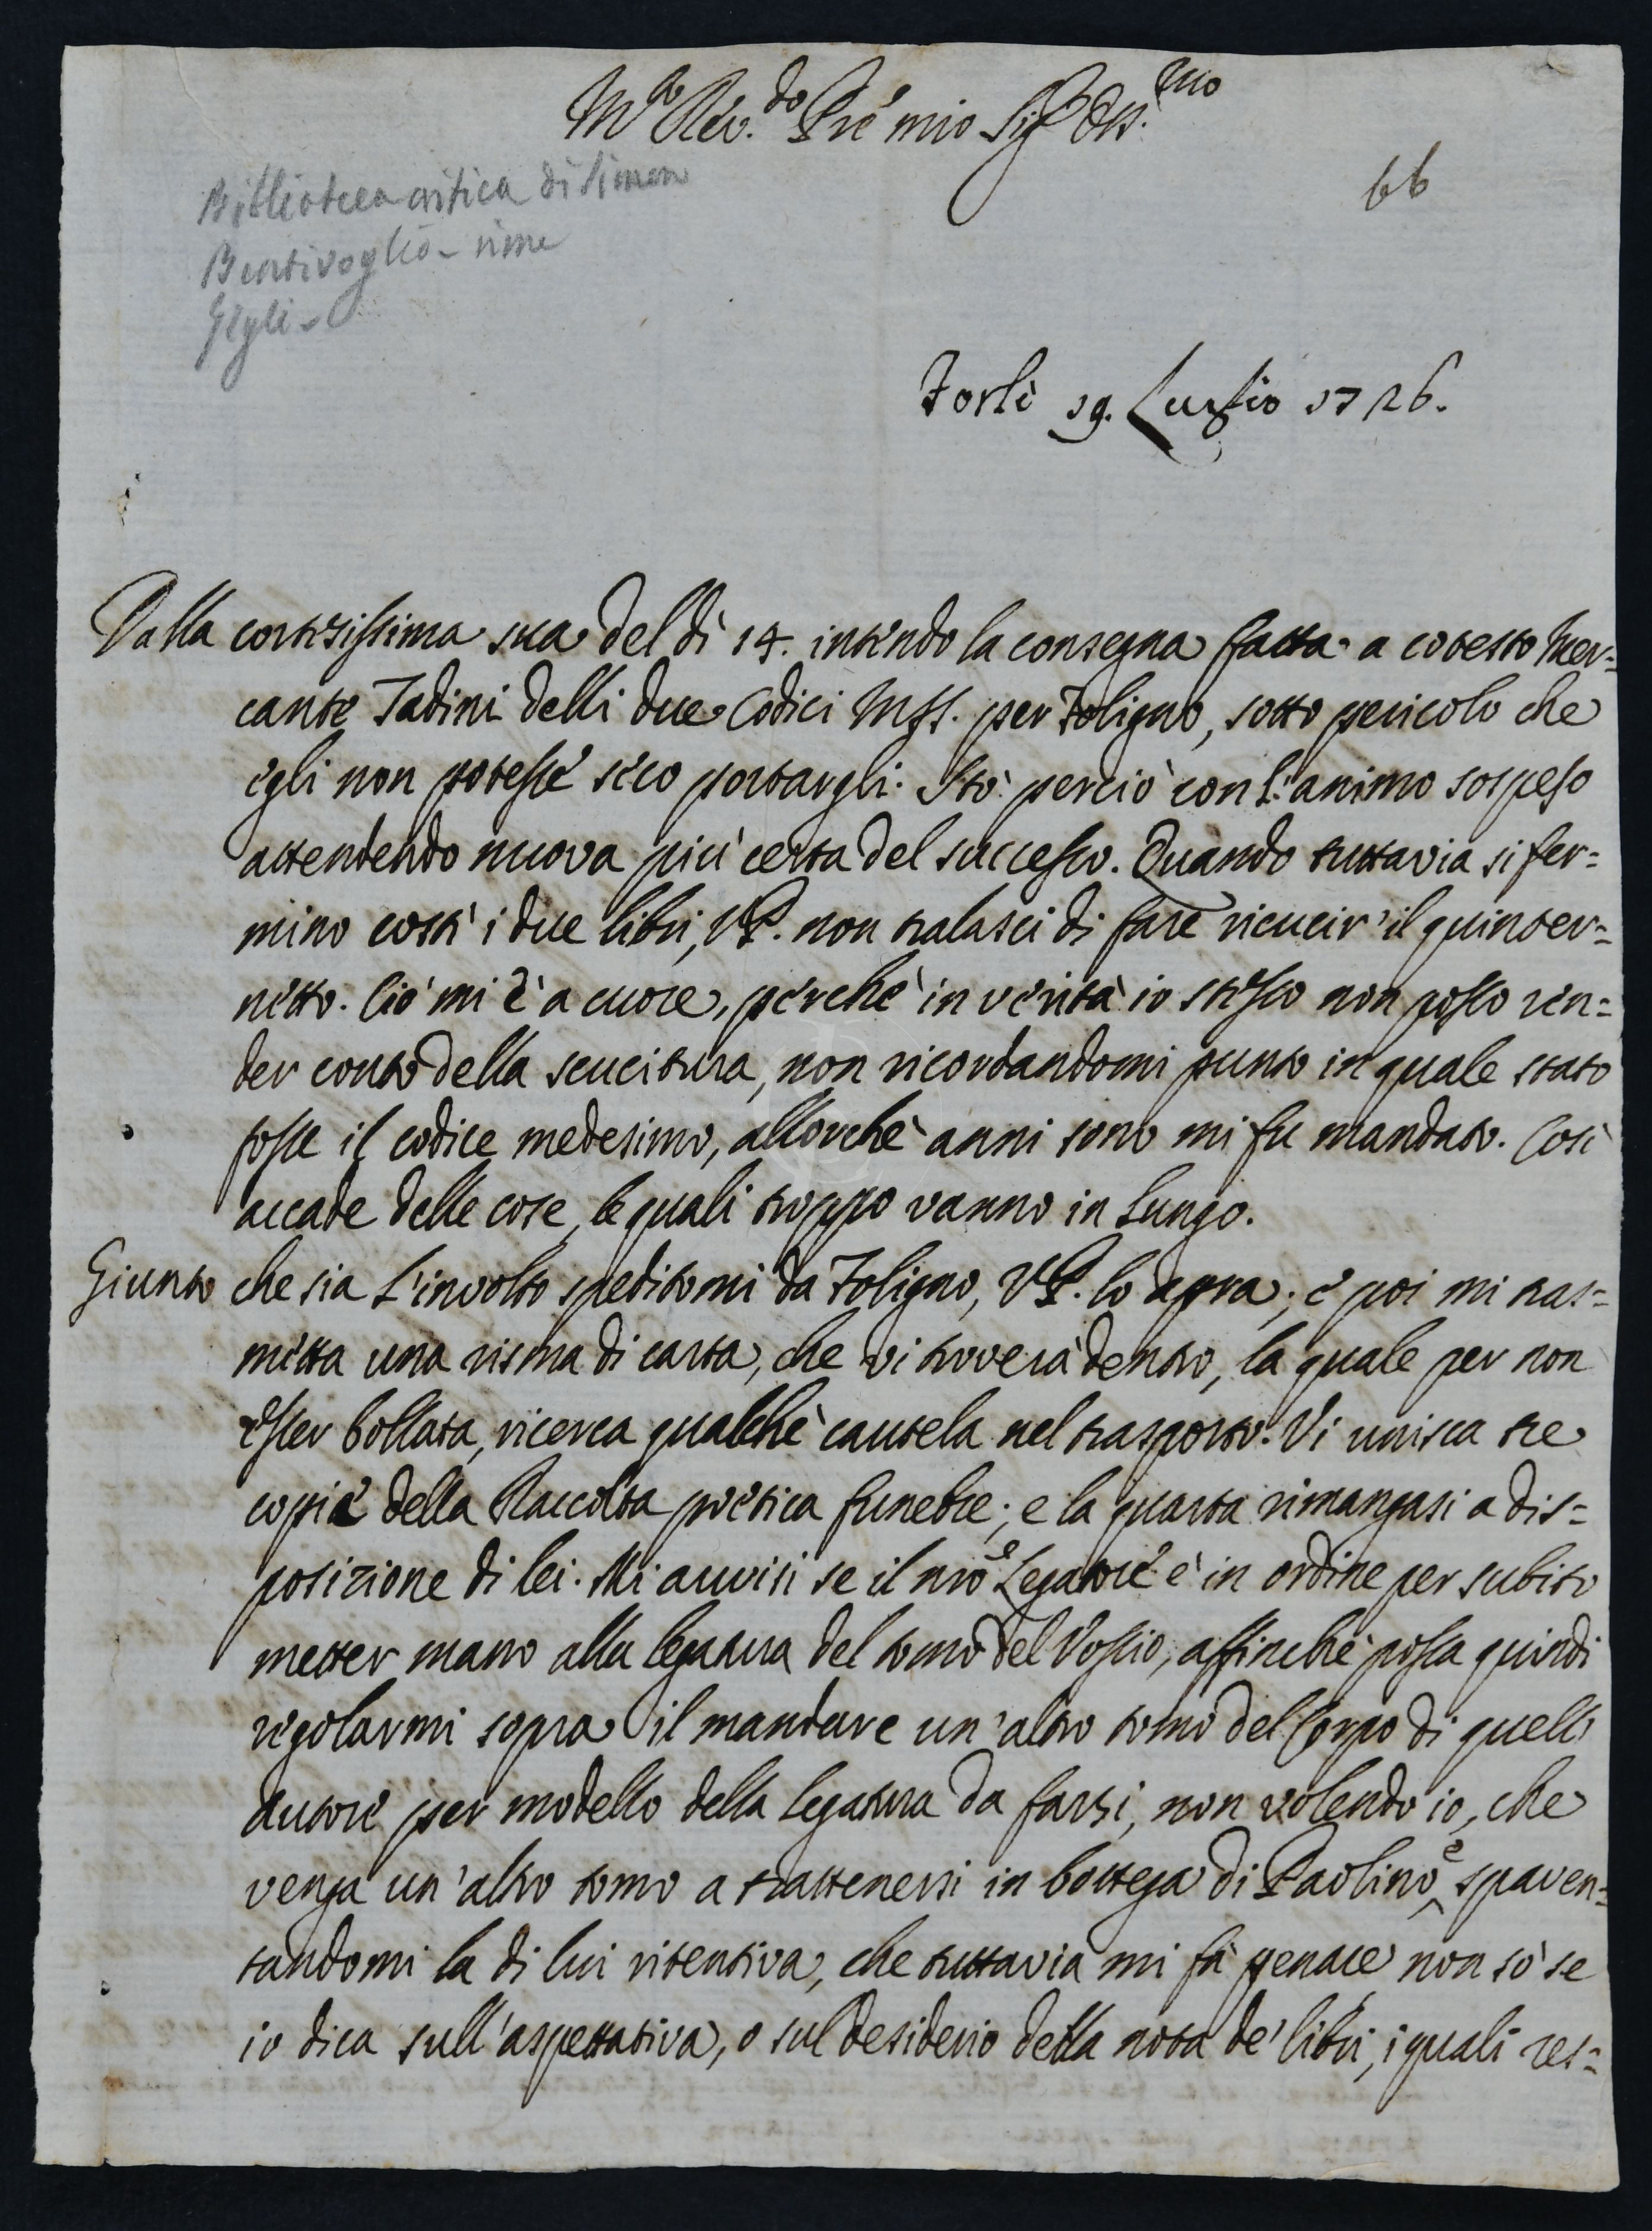 M.o Rev.do Pre mio Sig.r Oss.mo
66
Biblioteca critica di Simon
Bentivoglio - rime
Gigli -
Forlì 19. Luglio 1726.
Dalla cortesissima sua del dì 14. intendo la consegna fatta a cotesto Mer=
cante Tadini delli due Codici Mss. per Foligno, sotto pericolo che
egli non potesse seco portargli. Stò perciò con l'animo sospeso
attendendo nuova più certa del successo. Quando tuttavia si fer=
mino costì i due libri, V.P. non tralasci di fare ricucir' il quinter=
netto. Ciò mi è a cuore, perchè in verità io stesso non posso ren=
der conto della scucitura, non ricordandomi punto in quale stato
fosse il codice medesimo, allorchè anni sono mi fu mandato. Così
accade delle cose, le quali troppo vanno in lungo.
Giunto che sia l'involto speditomi da Foligno, V.P. lo apra; e poi mi tras=
metta una risma di carta, che vi troverà dentro, la quale per non
esser bollata, ricerca qualche cautela nel trasporto. Vi unisca tre
copie della Raccolta poetica funebre; e la quarta rimangasi a dis=
posizione di lei. Mi avvisi se il nrõ Legatore è in ordine per subito
metter mano alla legatura del tomo del Vossio, affinchè possa quindi
regolarmi sopra il mandare un'altro tomo del Corpo di quello
Autore per modello della legatura da farsi, non volendo io, che
venga un'altro tomo a trattenersi in bottega di Paolino, spaven=
tandomi la di lui ritentiva, che tuttavia mi fà penare non sò se
io dica sull'aspettativa, o sul desiderio della nota de' libri, i quali res=